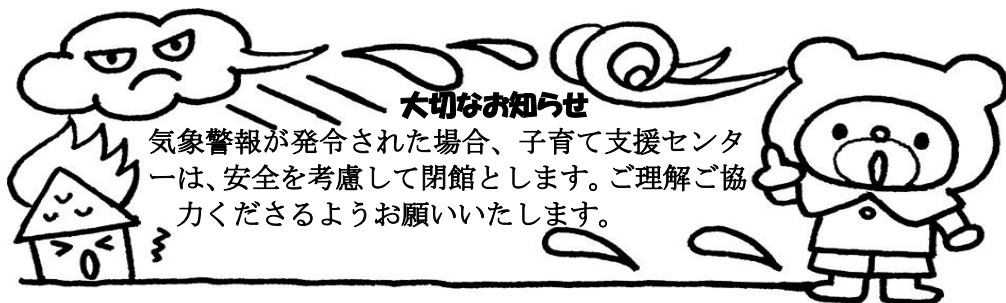 大切なお知らせ
気象警報が発令された場合、子育て支援センタ
ーは、安全を考慮して閉館とします。ご理解ご協
力くださるようお願いいたします。